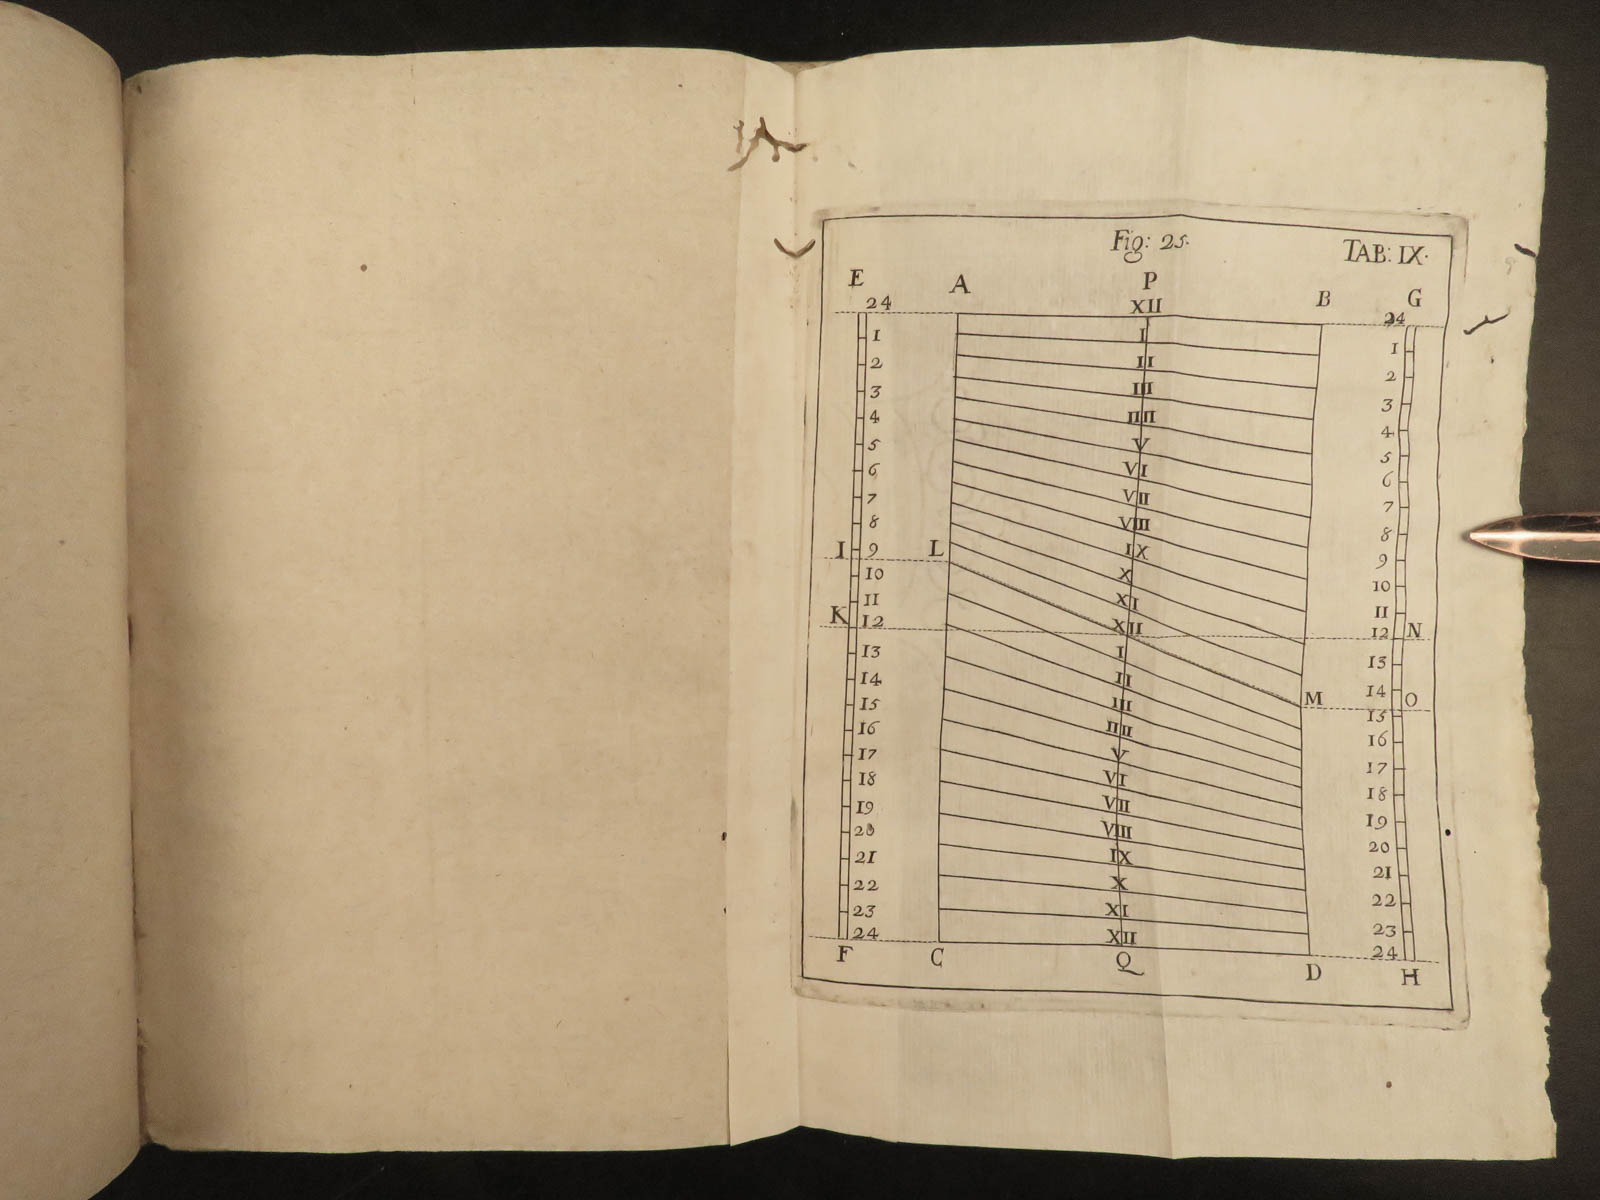 Fig: 25.
TAB: IX.
E A P B G
24 XII 24
1 I 1
2 II 2
3 III 3
4 IIII 4
5 V 5
6 VI 6
7 VII 7
8 VIII 8
I 9 L IX 9
10 X 10
11 XI 11
K 12 XII 12 N
13 I 13
14 II 14
15 III M 14 O
16 IIII 15
17 V 16
18 VI 17
19 VII 18
20 VIII 19
21 IX 20
22 X 21
23 XI 22
24 XII 23
24
F C Q D H